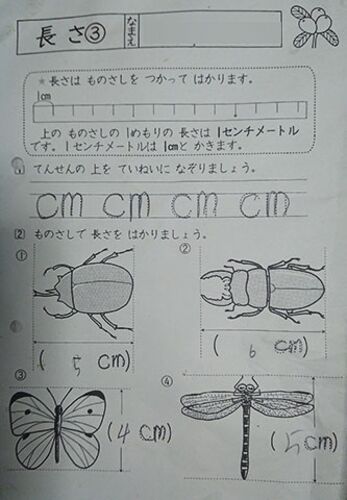 長さ③ なまえ
★長さは ものさしを つかって はかります。
1cm
上の ものさしの 1めもりの 長さは 1センチメートル
です。1センチメートルは 1cmと かきます。
① てんせんの 上を ていねいに なぞりましょう。
cm cm cm cm
② ものさしで 長さを はかりましょう。
① ②
( 5 cm) ( 6 cm)
③ ④
(4 cm) (5 cm)